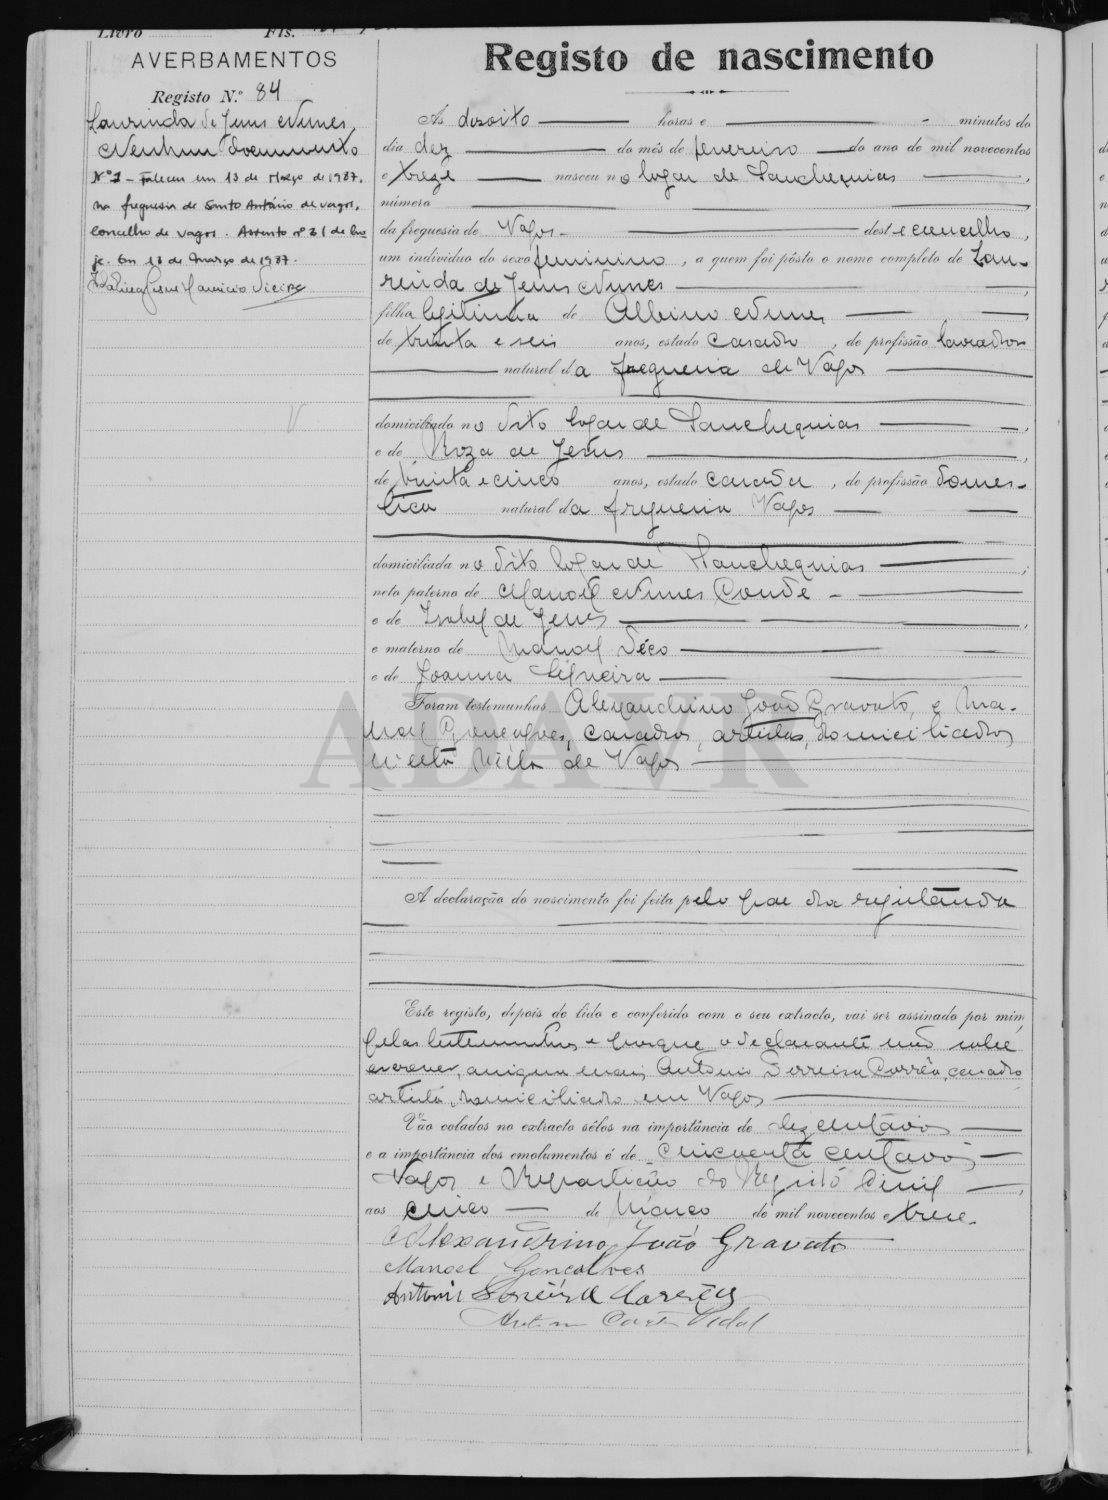 Livro Fls.
AVERBAMENTOS
Registo N.º 84
Laurinda de Jesus Nunes
Nenhum documento
Nº 1 - Faleceu em 13 de Março de 1987.
na freguesia de Santo António de Vagos,
concelho de Vagos. Assento nº 21 de ho
je. Em 18 de Março de 1987.
Registo de nascimento
Ás dezoito horas e minutos do
dia dez do mês de fevereiro do ano de mil novecentos
e treze nasceu no logar de Sanchequias
número
da freguesia de Vagos deste concelho,
um indivíduo do sexo feminino, a quem foi pôsto o nome completo de Lau-
rinda de Jesus Nunes
filha legitima de Albino Nunes
de trinta e seis anos, estado casado, de profissão lavrador
natural da freguesia de Vagos
domiciliado no dito logar de Sanchequias
e de Roza de Jesus
de trinta e cinco anos, estado casada, de profissão domes-
tica natural da freguesia Vagos
domiciliada no dito logar de Sanchequias
neto paterno de Manoel Nunes Conde
e de Izabel de Jesus
e materno de Manoel
e de Joanna
Foram testemunhas Alexandrino João Gravato, e Ma-
noel Gonçalves, casados, artistas, domiciliados
n'esta Villa de Vagos
ADAVR
A declaração do nascimento foi feita pelo pae da registanda
Este registo, depois de lido e conferido com o seu extracto, vai ser assinado por mim,
pelas testemunhas e porque o declarante não sabe
escrever, assigna mais Antonio Ferreira Corrêa, casado
artista, domiciliado em Vagos
Vão colados no extracto sêlos na importância de dez centavos
e a importância dos emolumentos é de cincoenta centavos
Vagos e Repartição do Registo Civil
aos cinco de Março de mil novecentos e treze.
Alexandrino João Gravato
Manoel Gonçalves
Antonio Ferreira Correia
Vidal